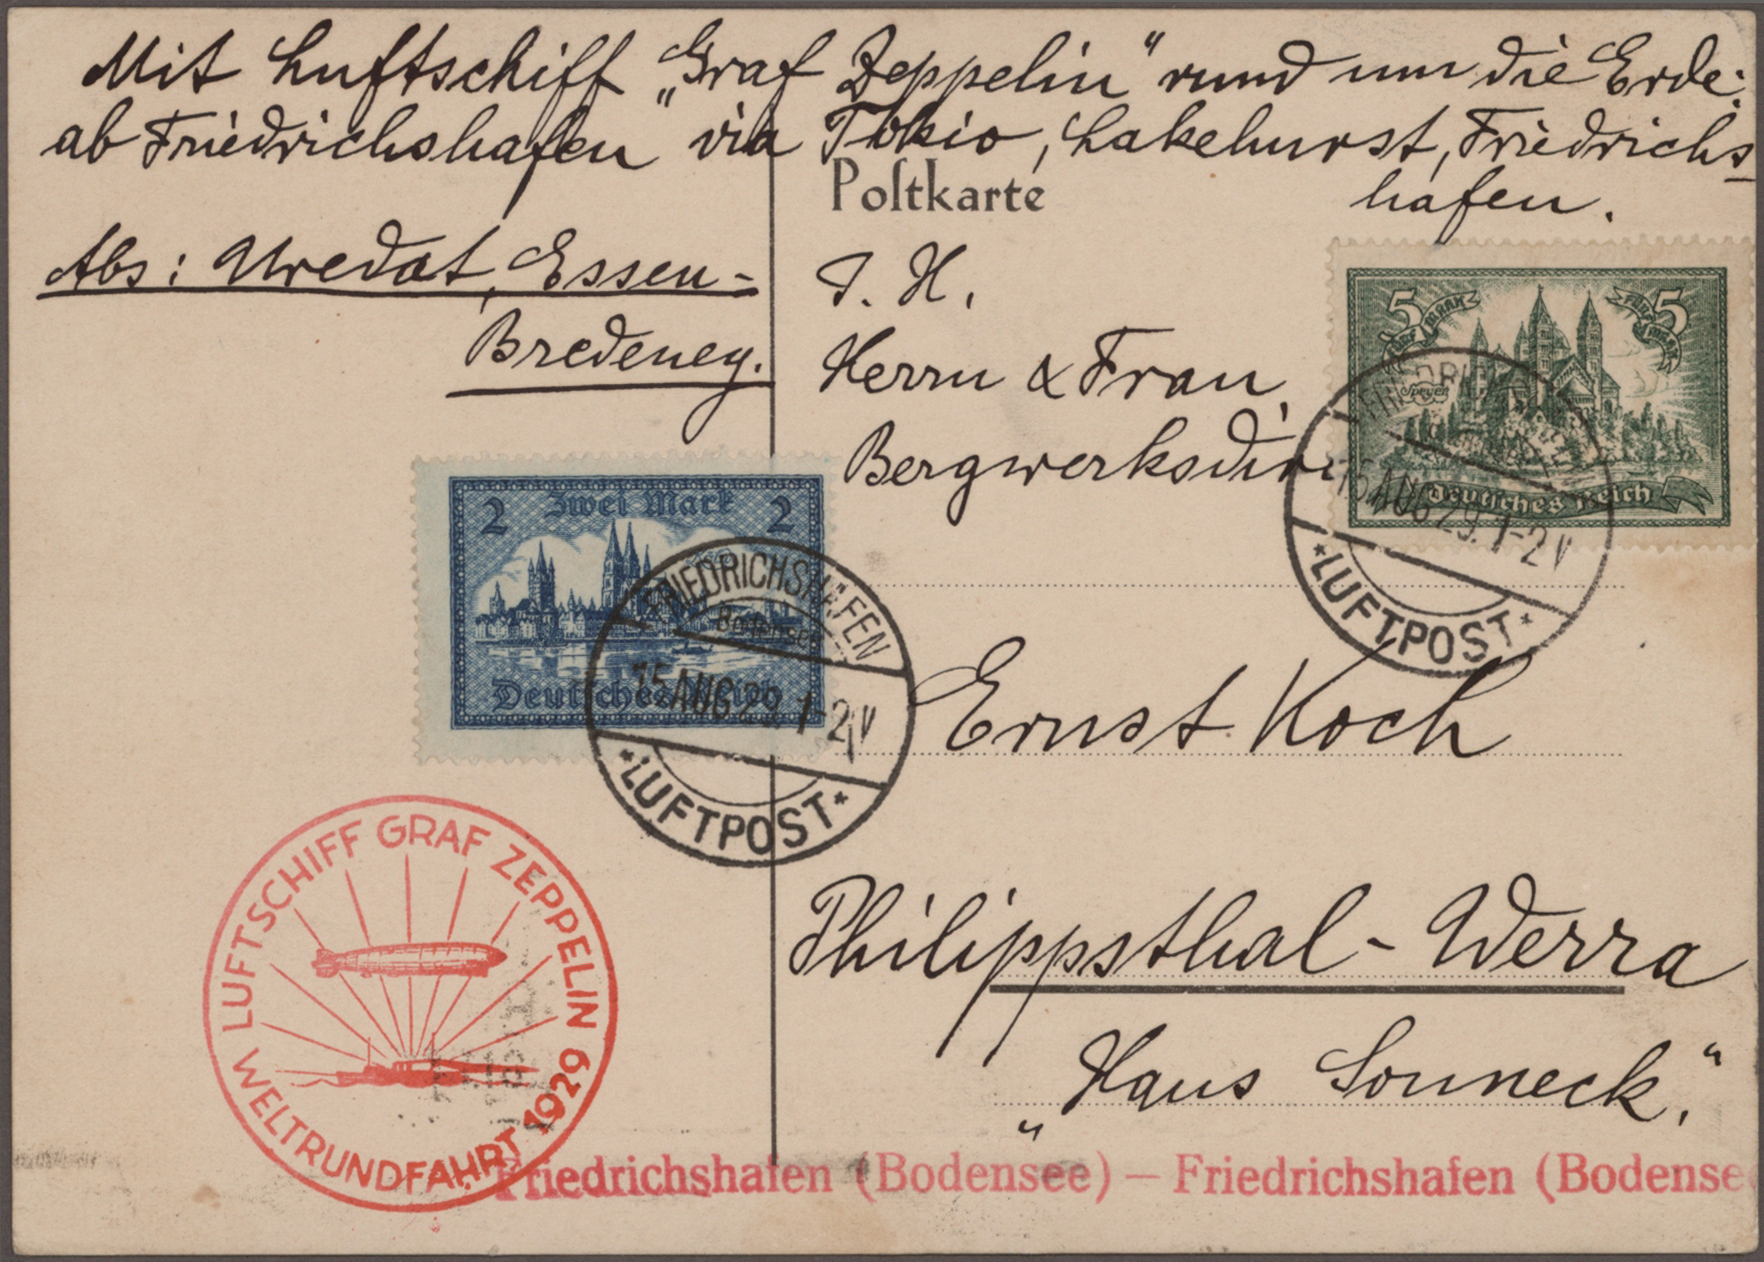 Mit Luftschiff „Graf Zeppelin“ rund um die Erde:
ab Friedrichshafen via Tokio, Lakehurst, Friedrichs-
hafen.
Postkarte
Abs: Wredat, Essen-
Bredeney.
J. H.
Herrn & Frau
Bergwerksdir
Ernst Koch
Philippsthal-Werra
„Haus Sonneck.“
5 FÜNF MARK FÜNF MARK 5
Speyer
Deutsches Reich
FRIEDRICHSHAFEN
15 AUG 29. 1-2 V
*LUFTPOST*
2 Zwei Mark 2
Deutsches Reich
FRIEDRICHSHAFEN
Bodensee
15 AUG 29. 1-2 V
*LUFTPOST*
LUFTSCHIFF GRAF ZEPPELIN
WELTRUNDFAHRT 1929
Friedrichshafen (Bodensee) — Friedrichshafen (Bodensee